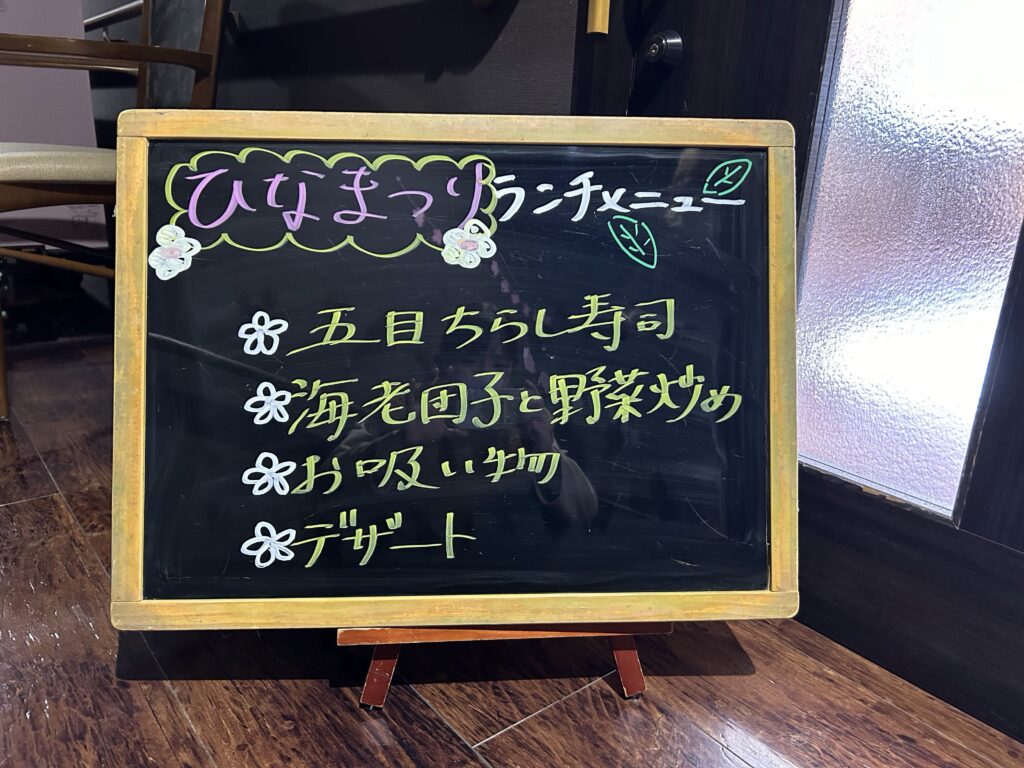 ひなまつりランチメニュー
五目ちらし寿司
海老団子と野菜炒め
お吸い物
デザート